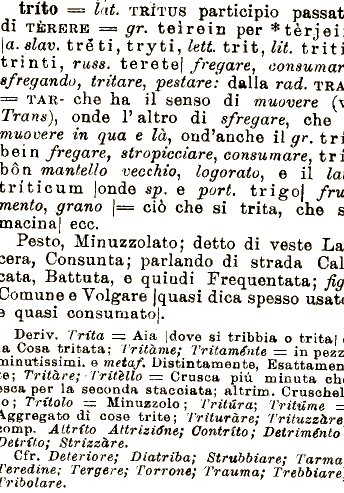 tríto = lat. TRÍTUS participio passat
di TÈRERE = gr. teirein per *tèrjei
|a. slav. trěti, tryti, lett. trit, lit. triti
trinti, russ. terete| fregare, consumar
sfregando, tritare, pestare: dalla rad. TRA
= TAR- che ha il senso di muovere (v
Trans), onde l'altro di sfregare, che
muovere in qua e là, ond'anche il gr. tri
bein fregare, stropicciare, consumare, tri
bôn mantello vecchio, logorato, e il la
tríticum |onde sp. e port. trigo| fru
mento, grano |= ciò che si trita, che s
macina| ecc.
Pesto, Minuzzolato; detto di veste La
cera, Consunta; parlando di strada Cal
cata, Battuta, e quindi Frequentata; fig
Comune e Volgare |quasi dica spesso usato
e quasi consumato|.
Deriv. Tríta = Aia |dove si tribbia o trita|
a Cosa tritata; Tritàme; Tritaménte = in pezz
minutissimi. e metaf. Distintamente, Esattamen
te; Tritàre; Tritèllo = Crusca piú minuta che
esca per la seconda stacciata; altrim. Cruschel
o; Trítolo = Minuzzolo; Tritúra; Tritúme =
Aggregato di cose trite; Trituràre; Trituzzàre;
comp. Attríto Attrizióne; Contríto; Detriménto
Detríto; Strizzàre.
Cfr. Deteriore; Diatriba; Strubbiare; Tarma
Teredine; Tergere; Torrone; Trauma; Trebbiare;
Tribolare.